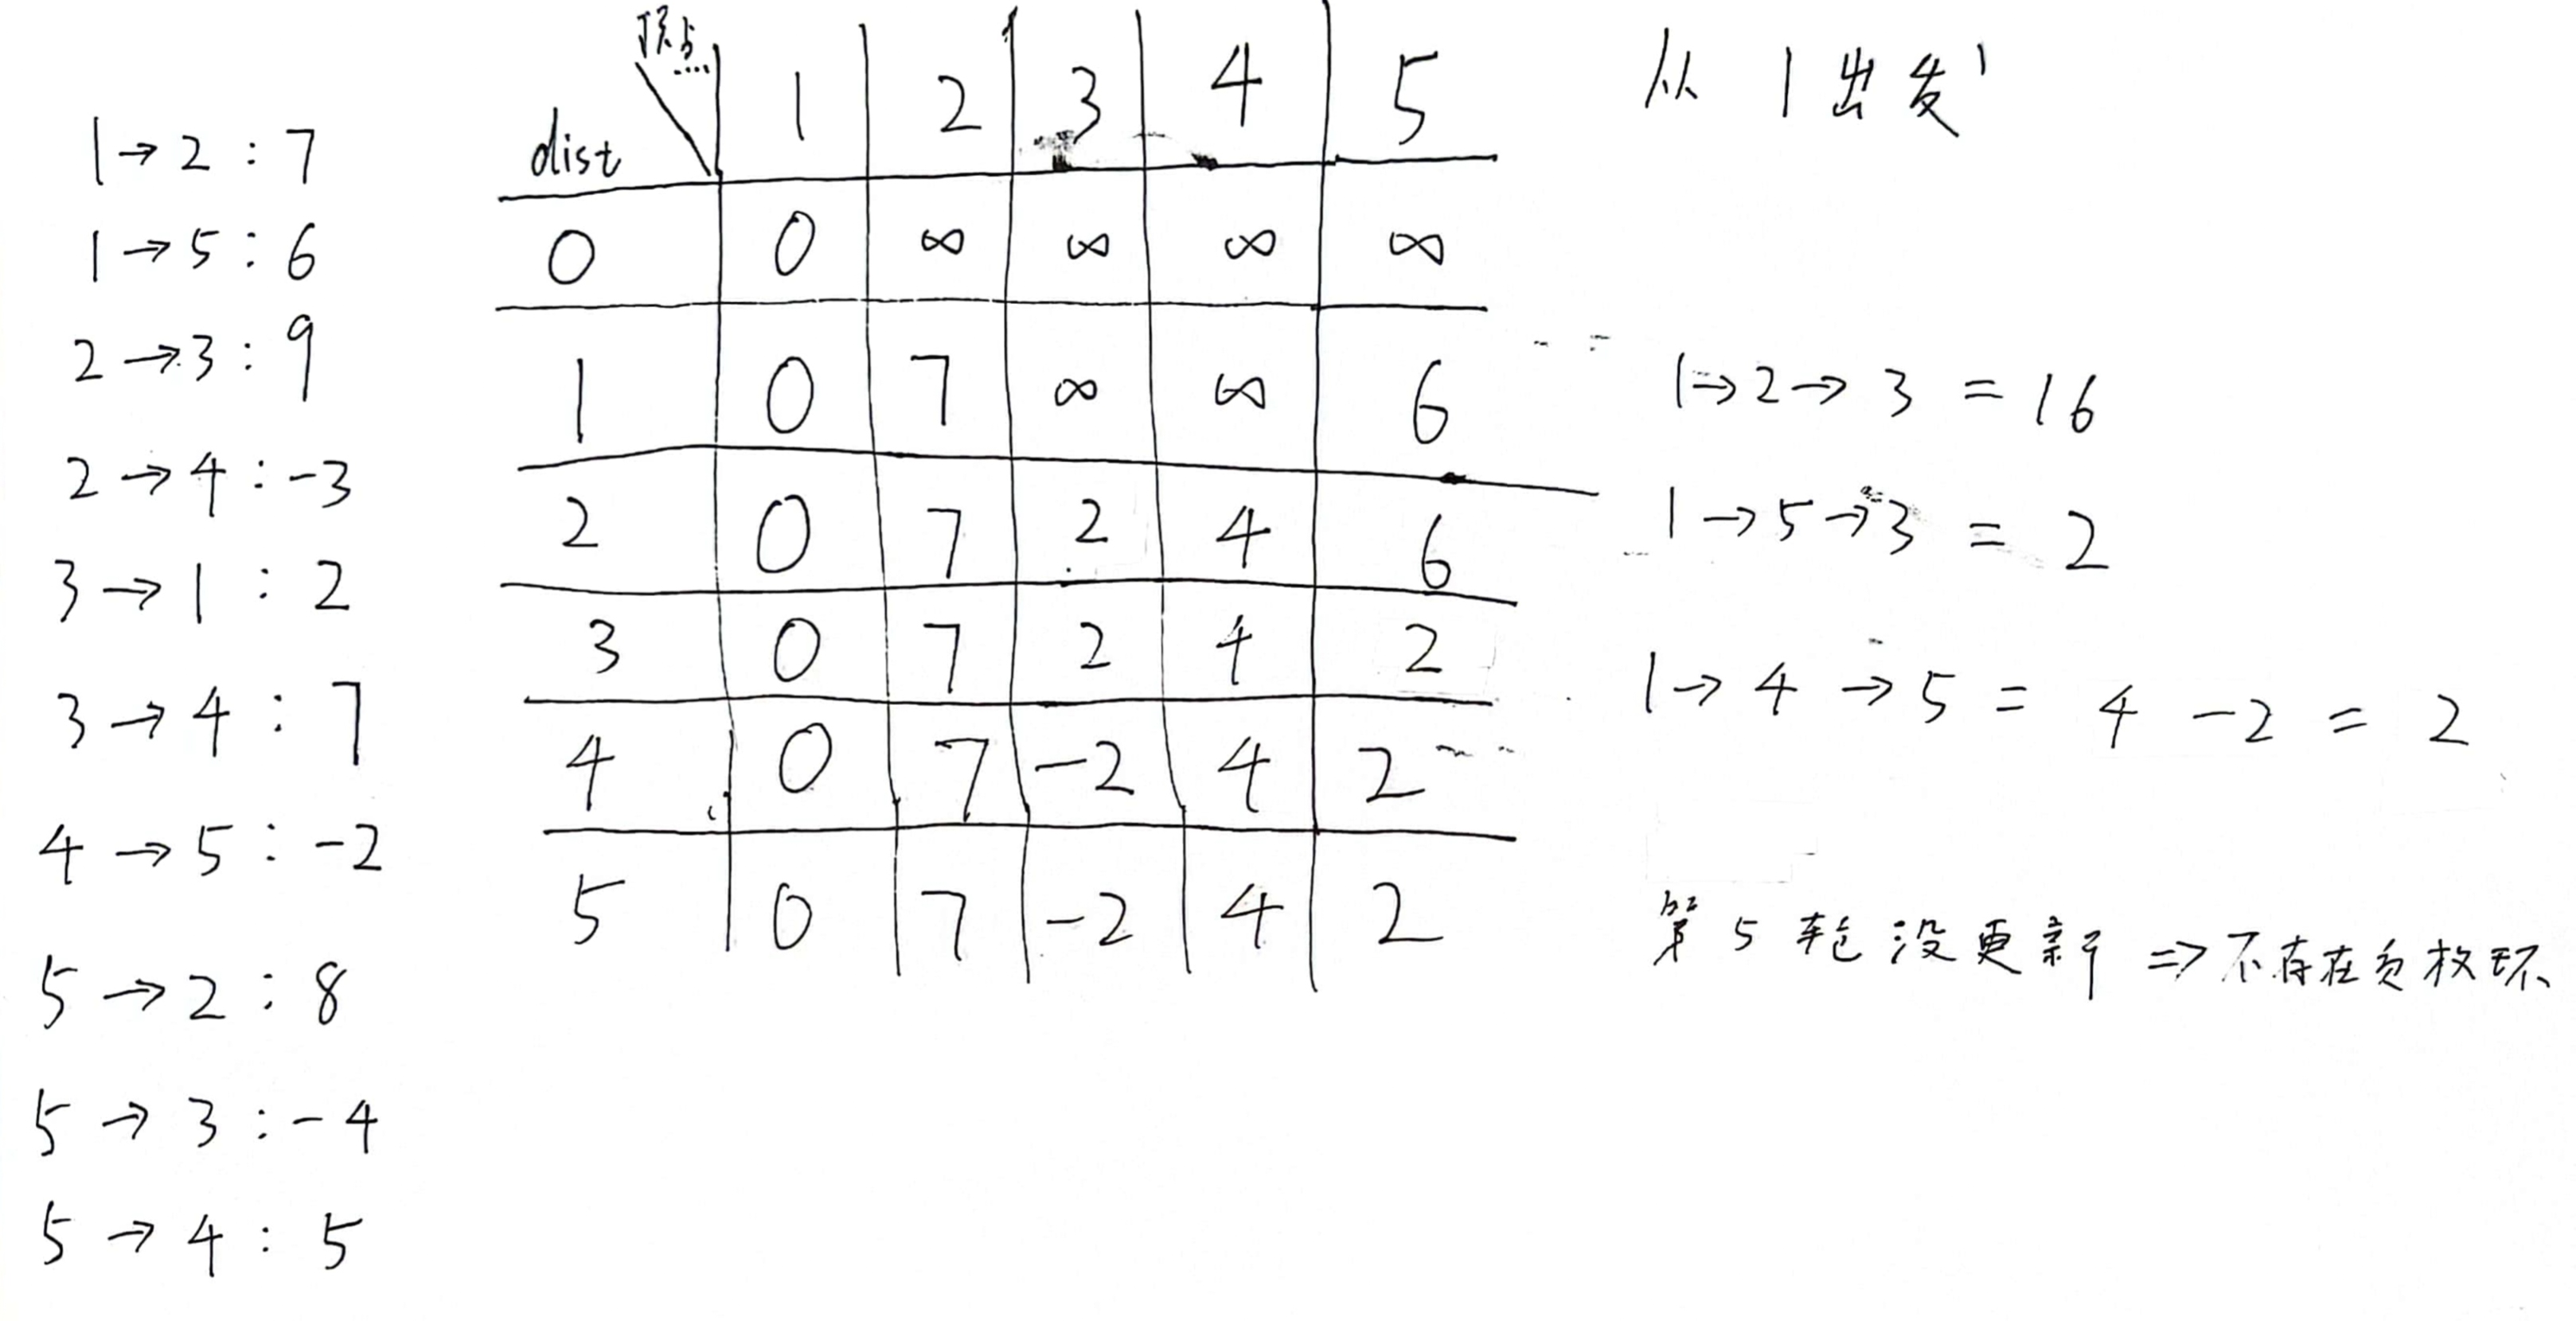 1→2 : 7
1→5 : 6
2→3 : 9
2→4 : -3
3→1 : 2
3→4 : 7
4→5 : -2
5→2 : 8
5→3 : -4
5→4 : 5
顶点
dist 1 2 3 4 5
0 0 ∞ ∞ ∞ ∞
1 0 7 ∞ ∞ 6
2 0 7 2 4 6
3 0 7 2 4 2
4 0 7 -2 4 2
5 0 7 -2 4 2
从 1 出发
1→2→3 = 16
1→5→3 = 2
1→4→5 = 4 -2 = 2
第 5 轮没更新 ⇒ 不存在负权环